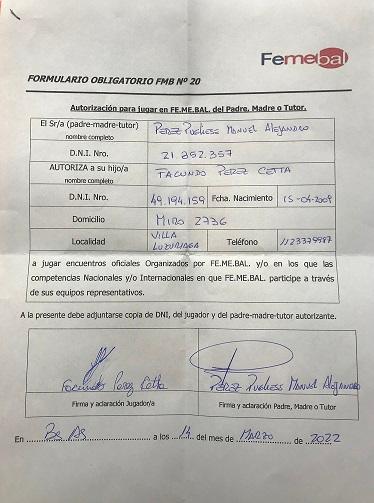 Femebal
FORMULARIO OBLIGATORIO FMB Nº 20
Autorización para jugar en FE.ME.BAL. del Padre, Madre o Tutor.
El Sr/a (padre-madre-tutor) PEREZ PUGLIESS MANUEL ALEJANDRO
nombre completo
D.N.I. Nro. 21.852.357
AUTORIZA a su hijo/a FACUNDO PEREZ CETTA
nombre completo
D.N.I. Nro. 49.194.159 Fcha. Nacimiento 15-04-2009
Domicilio MIRO 2736
Localidad VILLA LUZURIAGA Teléfono 1123379987
a jugar encuentros oficiales Organizados por FE.ME.BAL. y/o en los que las
competencias Nacionales y/o Internacionales en que FE.ME.BAL. participe a través
de sus equipos representativos.
A la presente debe adjuntarse copia de DNI, del jugador y del padre-madre-tutor autorizante.
Facundo Perez Cetta PEREZ PUGLIESS MANUEL ALEJANDRO
Firma y aclaración Jugador/a Firma y aclaración Padre, Madre o Tutor
En Bs As a los 14 del mes de MARZO de 2022